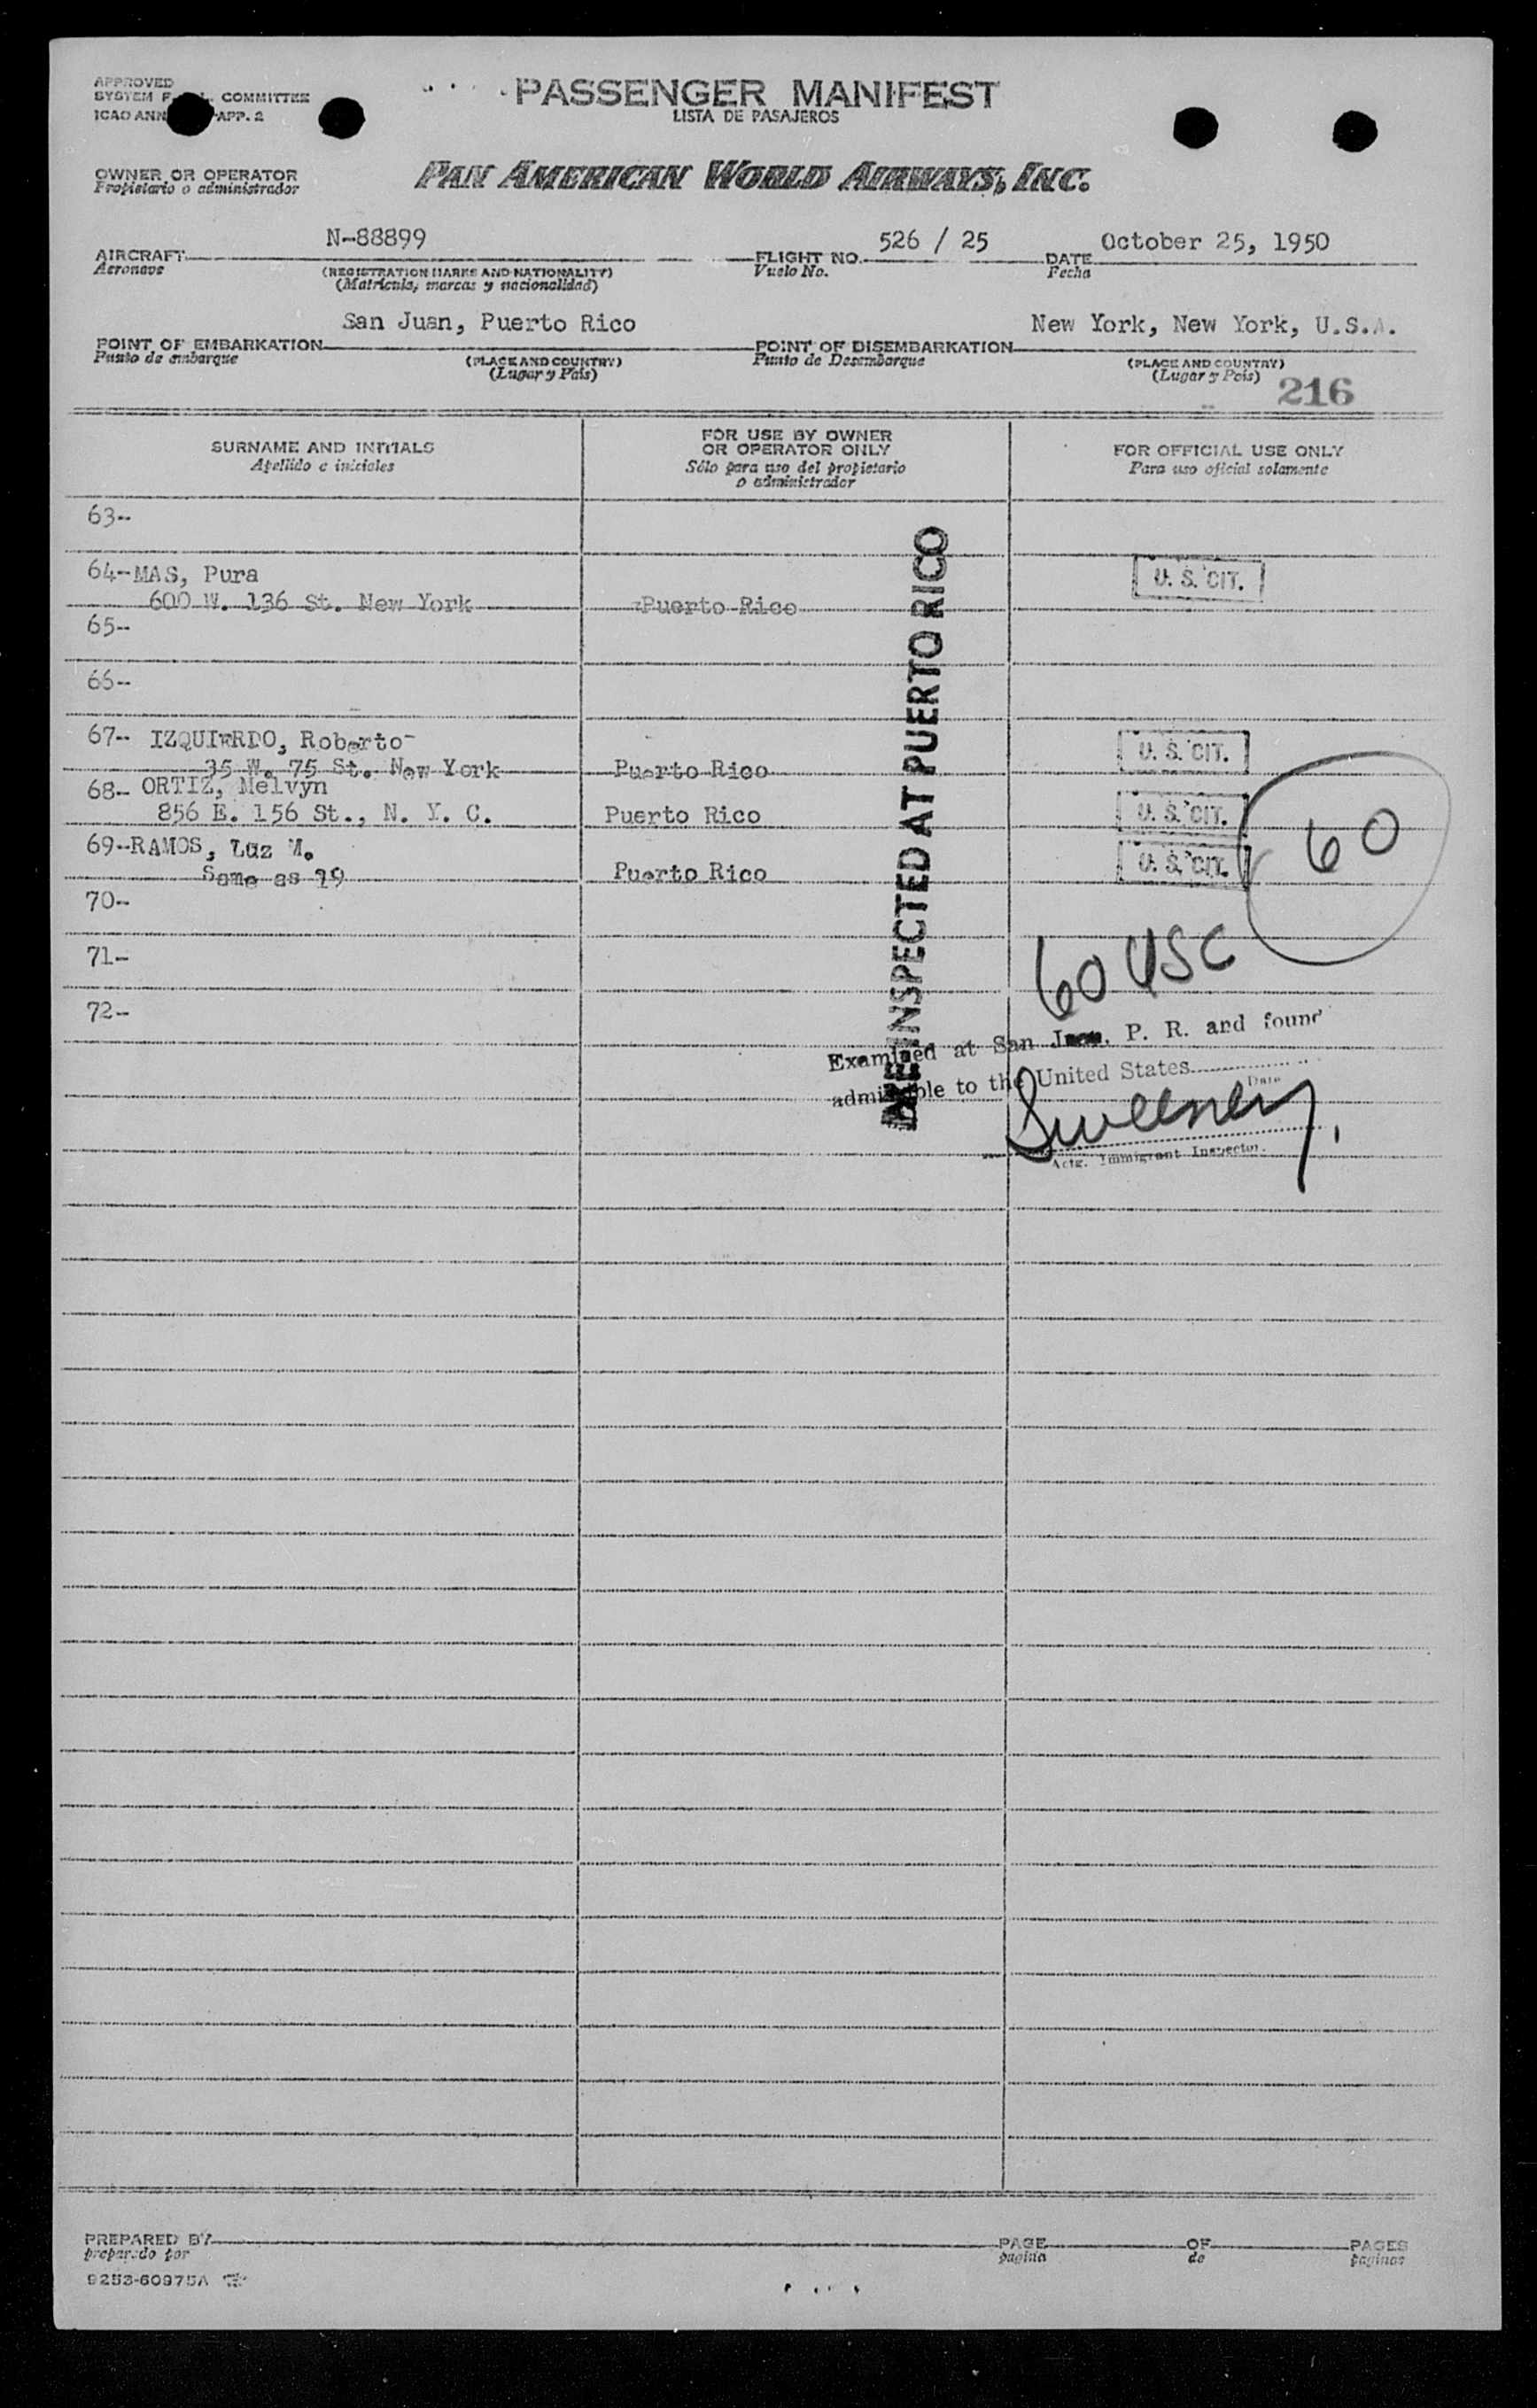 APPROVED
SYSTEM F. COMMITTEE
ICAO ANN APP. 2
PASSENGER MANIFEST
LISTA DE PASAJEROS
OWNER OR OPERATOR
Propietario o administrador
PAN AMERICAN WORLD AIRWAYS, INC.
AIRCRAFT N-88899
Aeronave
(REGISTRATION MARKS AND NATIONALITY)
(Matricula, marcas y nacionalidad)
FLIGHT NO. 526 / 25
Vuelo No.
DATE October 25, 1950
Fecha
POINT OF EMBARKATION San Juan, Puerto Rico
Punto de embarque
(PLACE AND COUNTRY)
(Lugar y País)
POINT OF DISEMBARKATION New York, New York, U.S.A.
Punto de Desembarque
(PLACE AND COUNTRY)
(Lugar y País)
216
SURNAME AND INITIALS
Apellido e iniciales
FOR USE BY OWNER
OR OPERATOR ONLY
Sólo para uso del propietario
o administrador
FOR OFFICIAL USE ONLY
Para uso oficial solamente
63--
64-MAS, Pura U. S. CIT.
600 W. 136 St. New York Puerto Rico
65--
66--
67-- IZQUIERDO, Roberto U. S. CIT.
35 W. 75 St. New York Puerto Rico
68- ORTIZ, Melvyn
856 E. 156 St., N. Y. C. Puerto Rico U. S. CIT.
69--RAMOS, Luz M. U. S. CIT.
Same as 19 Puerto Rico
60
70--
71-
72-
60 USC
INSPECTED AT PUERTO RICO
Examined at San Juan, P. R. and found
admissible to the United States
Date
Sweeney
Actg. Immigrant Inspector.
PREPARED BY
preparado por
PAGE OF PAGES
pagina de paginas
9253-60975A